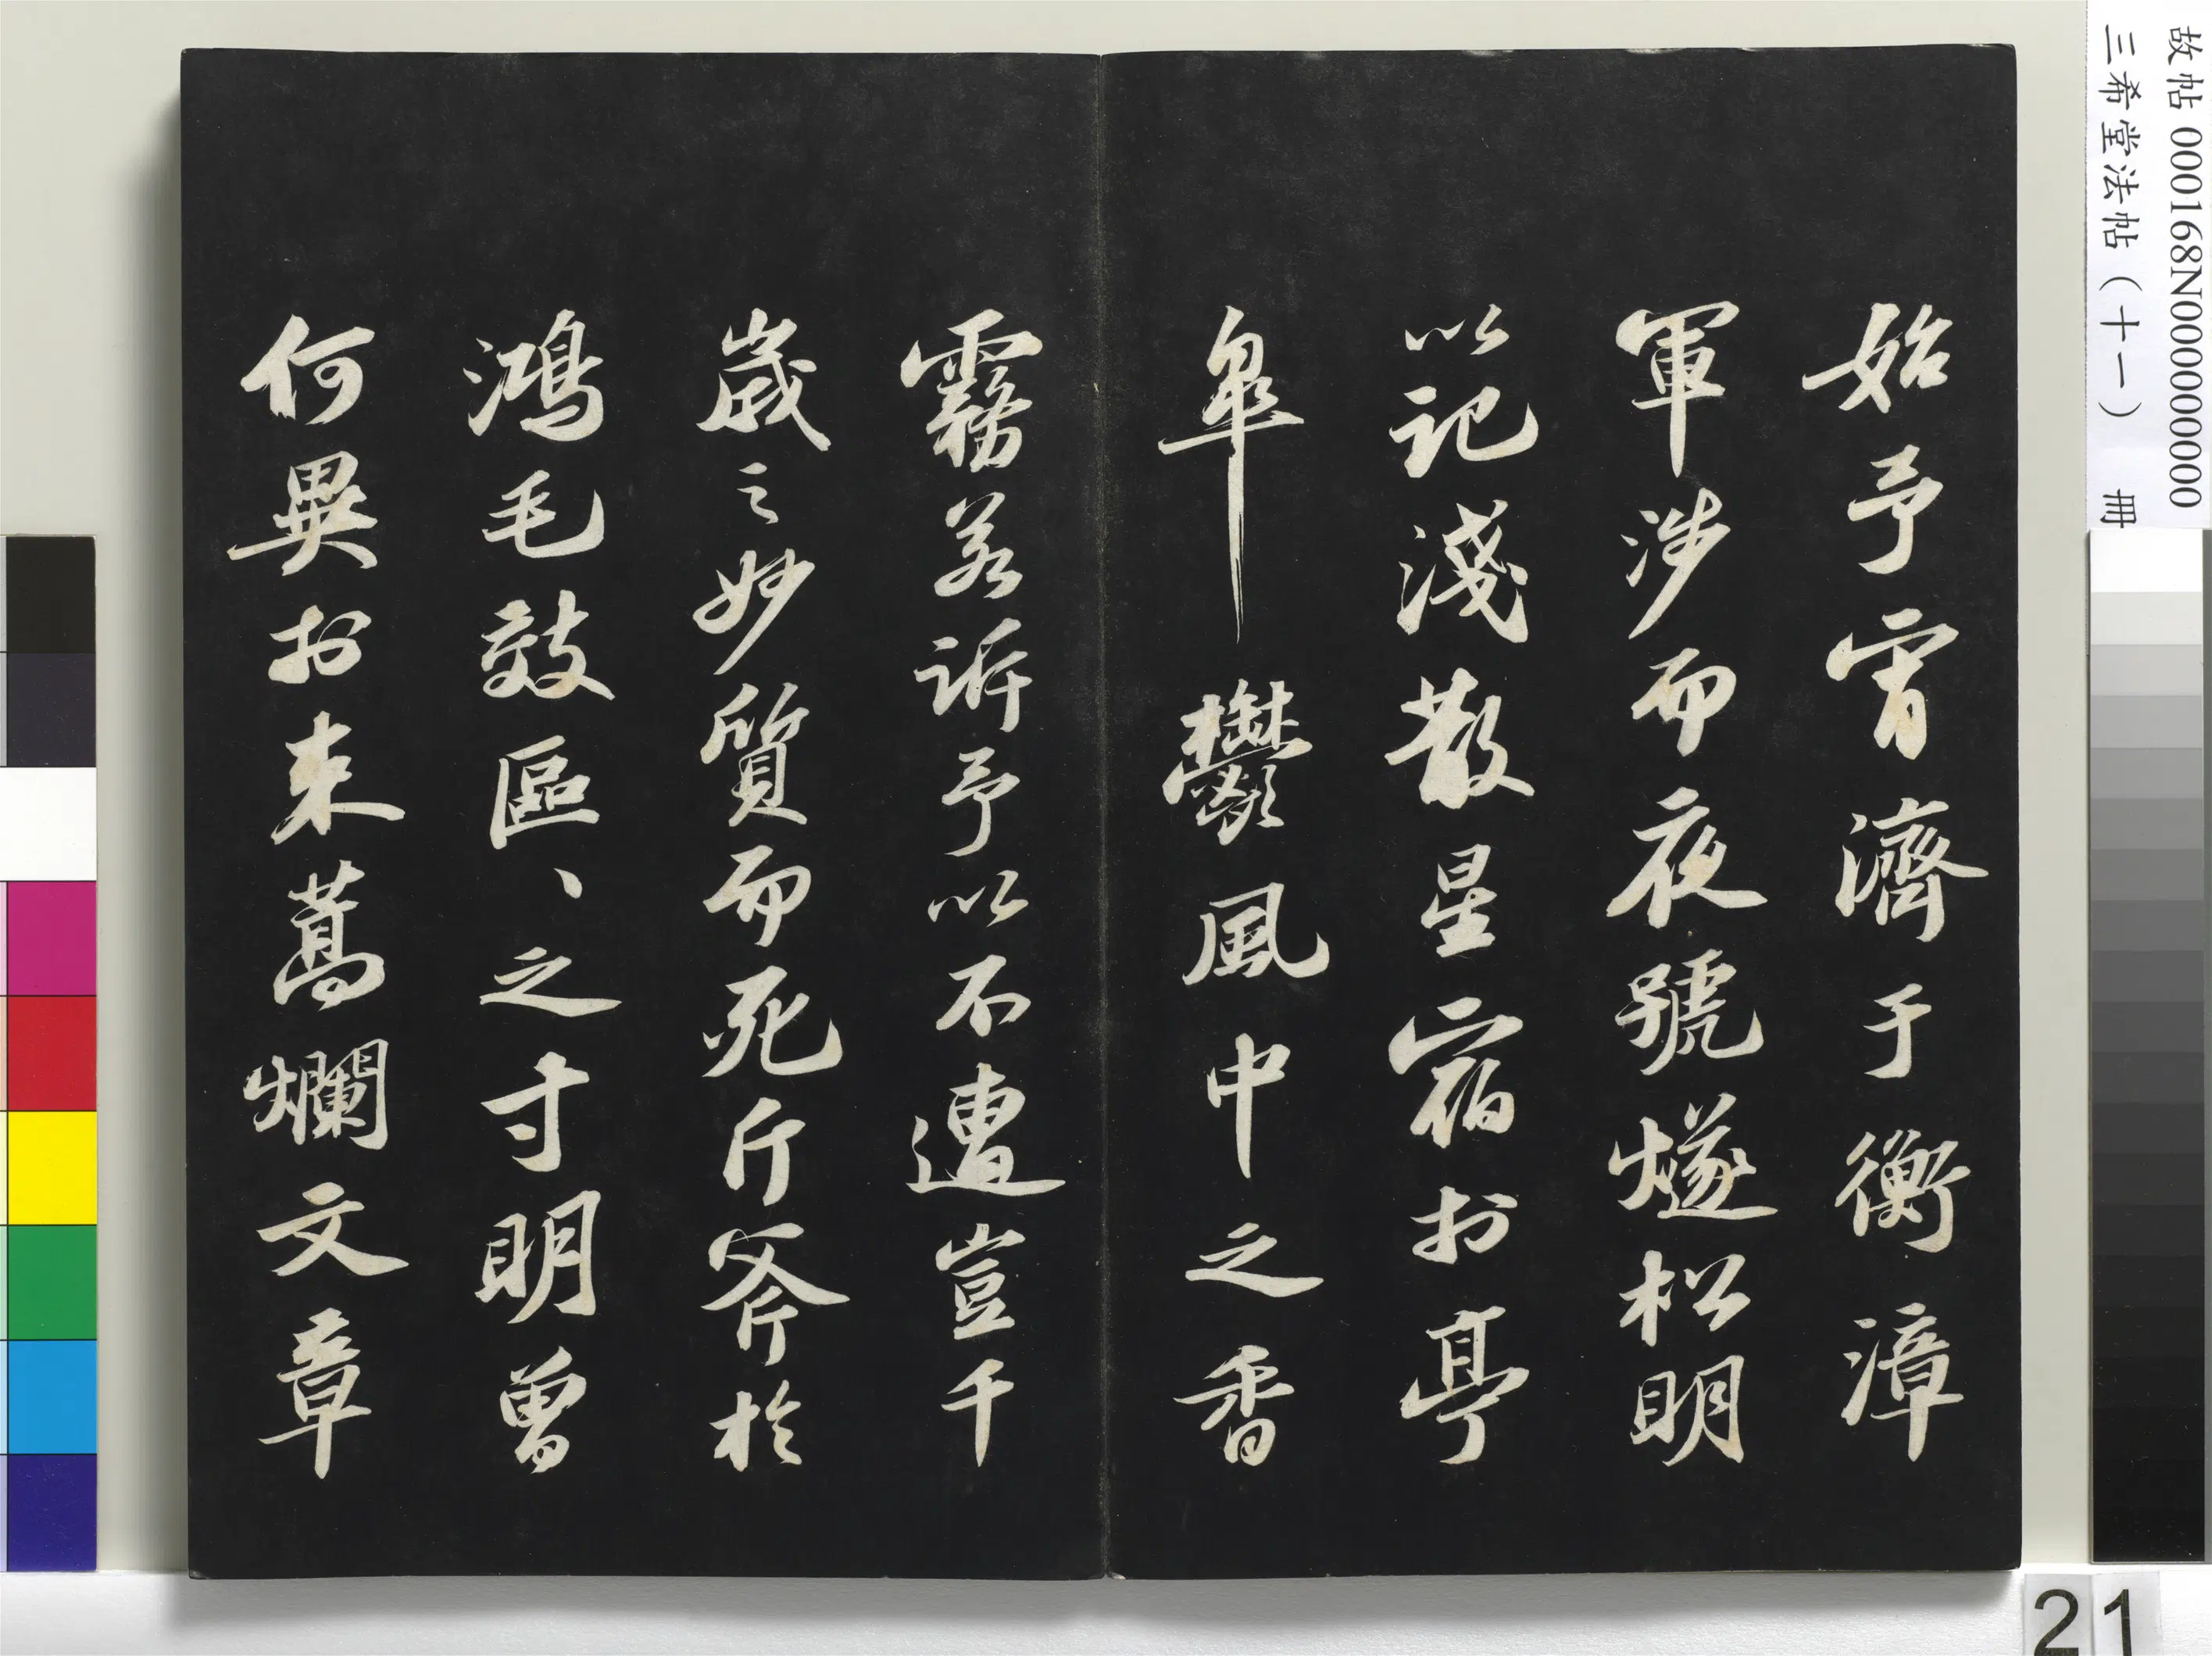 始予宵濟于衡漳
軍涉而夜號燧松明
以記淺散星宿於亭
皐鬱風中之香
霧若訴予以不遭豈千
歲之妙質而死斤斧於
鴻毛效區、之寸明曾
何異於束蒿爛文章
故帖 000168N000000000
三希堂法帖（十一） 冊
21